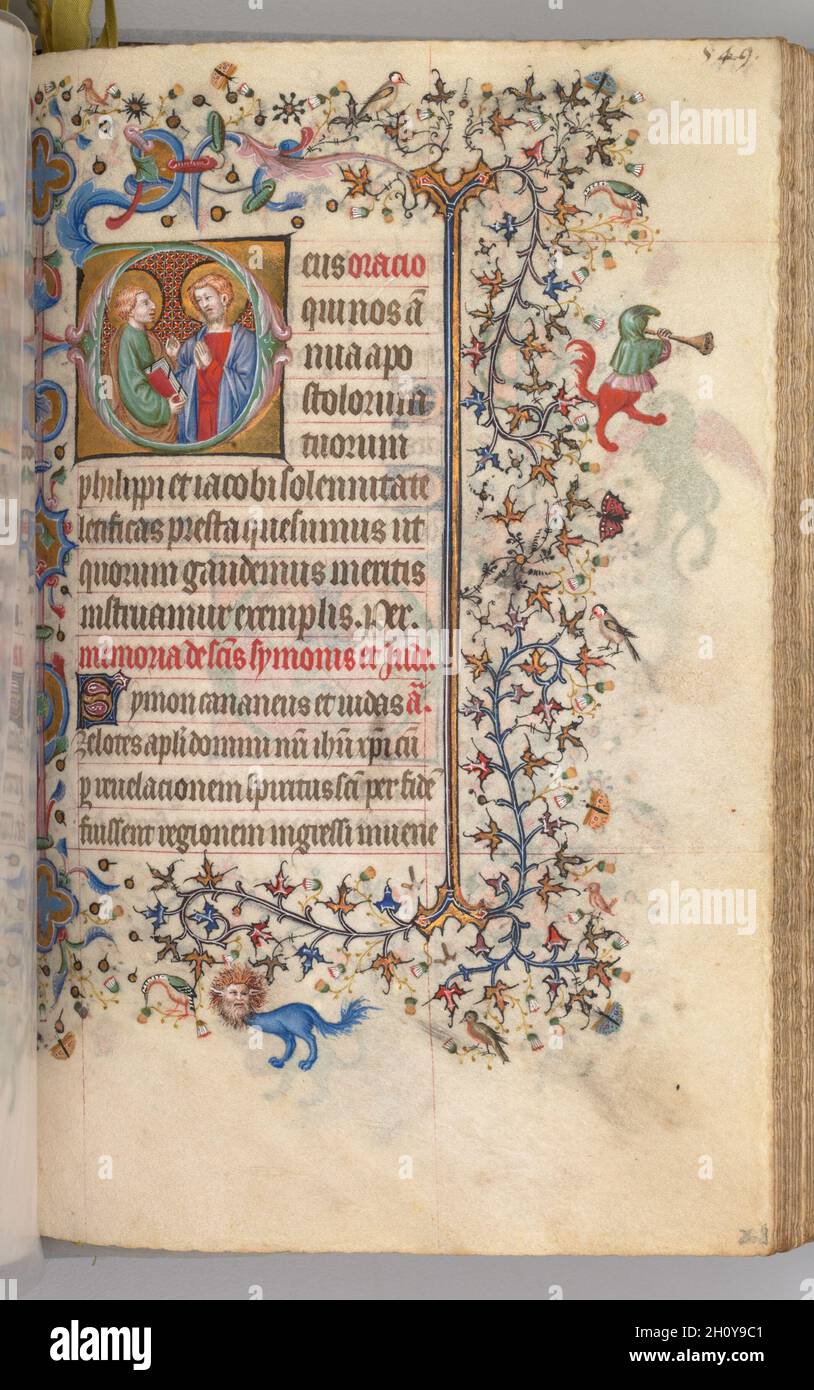 549.
Deus oracio
qui nos ā
nua apo
stolorum
tuorum
philippi et iacobi solennitate
letificas presta quesumus ut
quorum gaudemus meritis
instruamur exemplis. Per.
memoria de scīs symonis et Jude.
Symon cananeus et iudas ā.
zelotes apli domini nrī ihū xpī cū
p reuelacionem spiritus scī per fidē
fuissent regionem ingressi inuene
268
alamy
alamy
Image ID: 2H0Y9C1
www.alamy.com